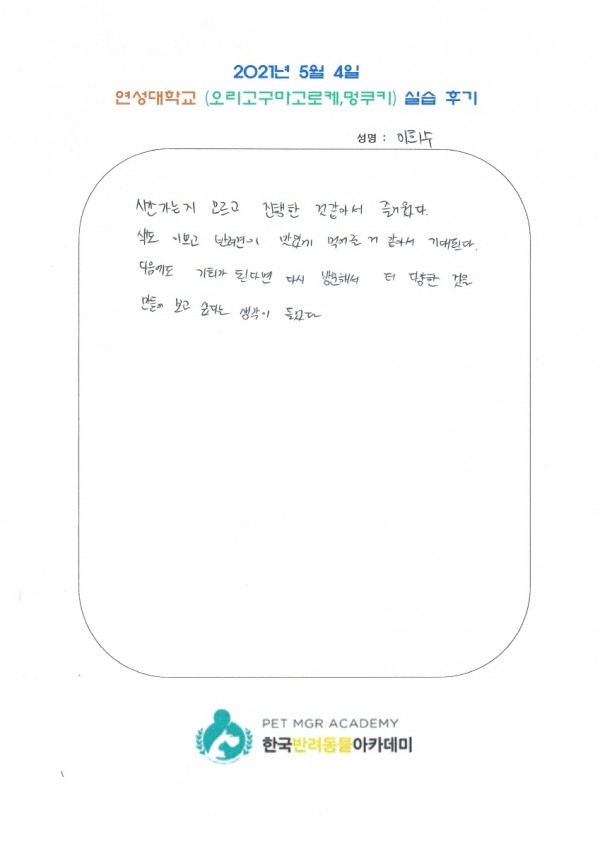 2021년 5월 4일
연성대학교 (오리고구마고로케,멍쿠키) 실습 후기
성명 : 이희수
시간가는지 모르고 진행한 것같아서 즐거웠다.
색도 이쁘고 반려견이 맛있게 먹어줄 거 같아서 기대된다.
다음에도 기회가 된다면 다시 방문해서 더 다양한 것을
만들어 보고 싶다는 생각이 들었다
PET MGR ACADEMY
한국반려동물아카데미